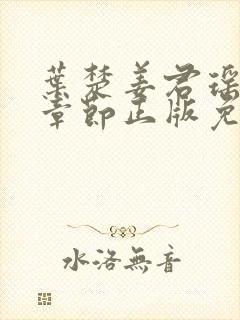 葉楚姜君瑶
章節正版免
水洛無音